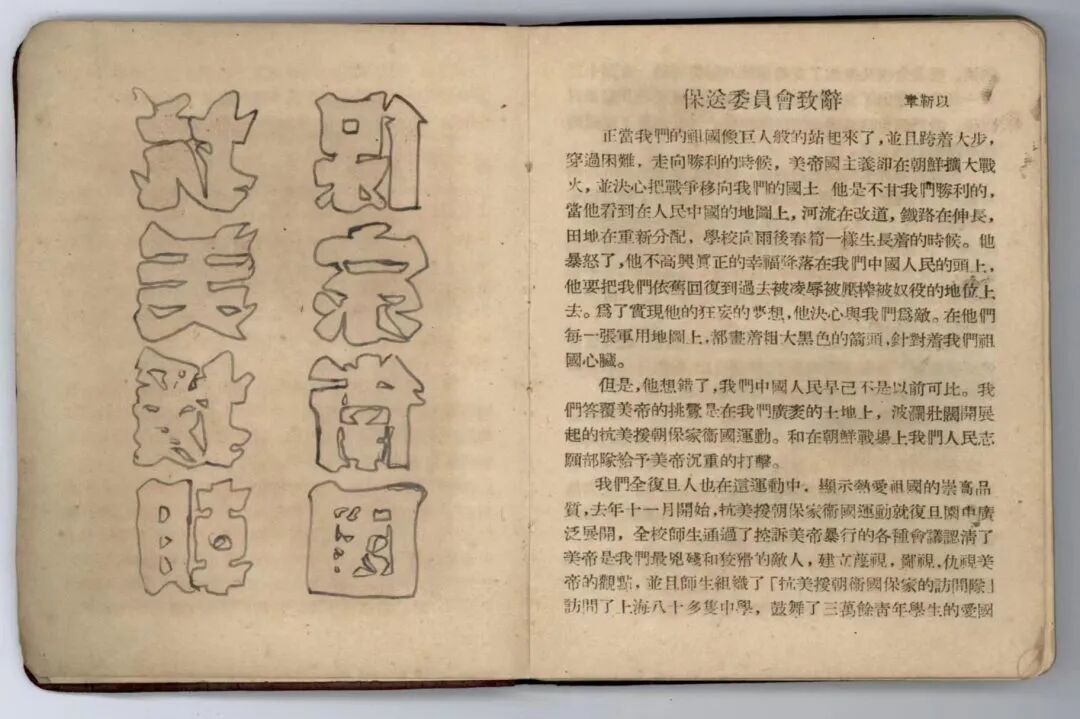 抗美援朝
保家衛國
保送委員會致辭 章靳以
正當我們的祖國像巨人般的站起來了，並且跨着大步，
穿過困難，走向勝利的時候，美帝國主義卻在朝鮮擴大戰
火，並決心把戰爭移向我們的國土 他是不甘我們勝利的，
當他看到在人民中國的地圖上，河流在改道，鐵路在伸長，
田地在重新分配，學校向雨後春筍一樣生長着的時候。他
暴怒了，他不高興眞正的幸福降落在我們中國人民的頭上，
他要把我們依舊回復到過去被凌辱被壓榨被奴役的地位上
去。爲了實現他的狂妄的夢想，他決心與我們爲敵。在他們
每一張軍用地圖上，都畫着粗大黑色的箭頭，針對着我們祖
國心臟。
但是，他想錯了，我們中國人民早已不是以前可比。我
們答覆美帝的挑釁是在我們廣袤的土地上，波瀾壯闊開展
起的抗美援朝保家衞國運動。和在朝鮮戰場上我們人民志
願部隊給予美帝沉重的打擊。
我們全復旦人也在這運動中，顯示熱愛祖國的崇高品
質，去年十一月開始，抗美援朝保家衞國運動就復旦園中廣
泛展開，全校師生通過了控訴美帝暴行的各種會議認清了
美帝是我們最兇殘和狡猾的敵人，建立蔑視，鄙視，仇視美
帝的觀點，並且師生組織了「抗美援朝衞國保家的訪問隊」
訪問了上海八十多隻中學，鼓舞了三萬餘青年學生的愛國